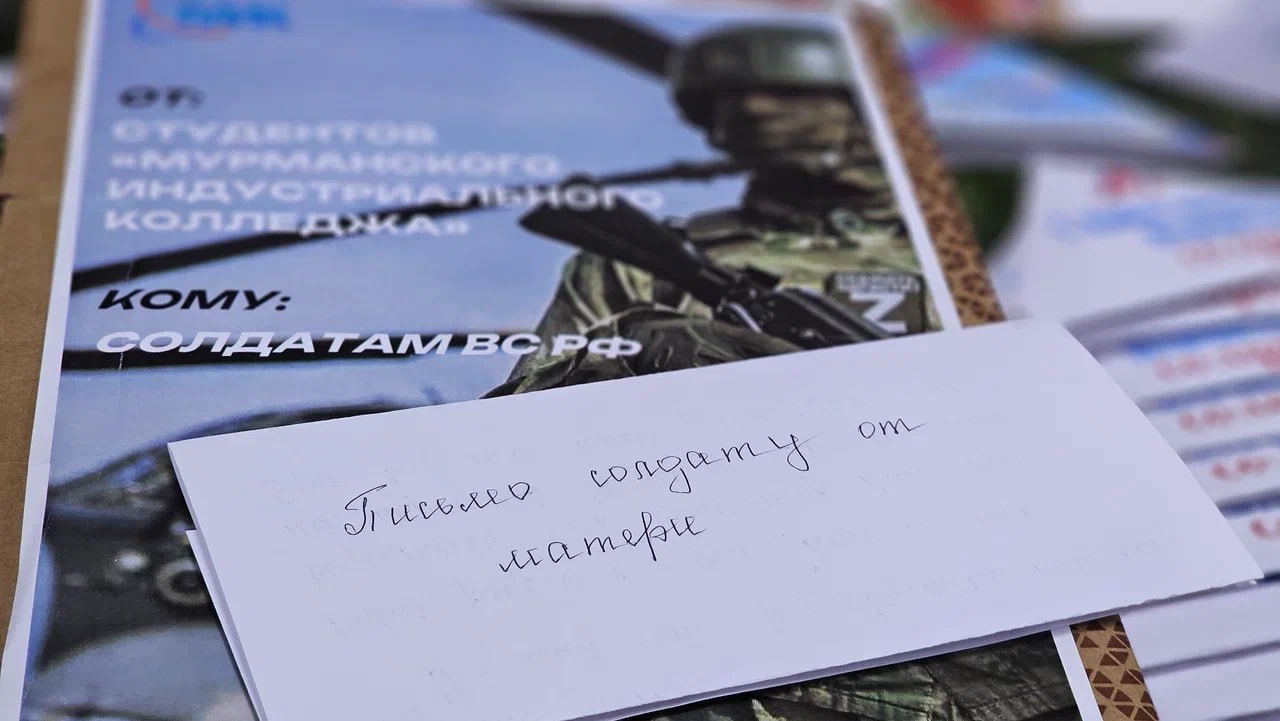 ОТ:
СТУДЕНТОВ
«МУРМАНСКОГО
ИНДУСТРИАЛЬНОГО
КОЛЛЕДЖА»
КОМУ:
СОЛДАТАМ ВС РФ
Z
Письмо солдату от
матери